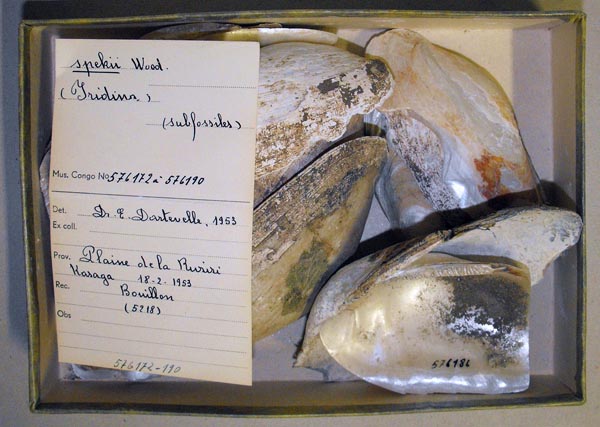 spekii Wood.
(Iridina)
(subfossiles)
Mus. Congo No 576172 à 576190
Det. Dr. E. Dartevelle, 1953
Ex coll.
Prov. Plaine de la Ruziri
Karaga 18-2-1953
Rec. Bouillon
(5218)
Obs
576172-190
576186